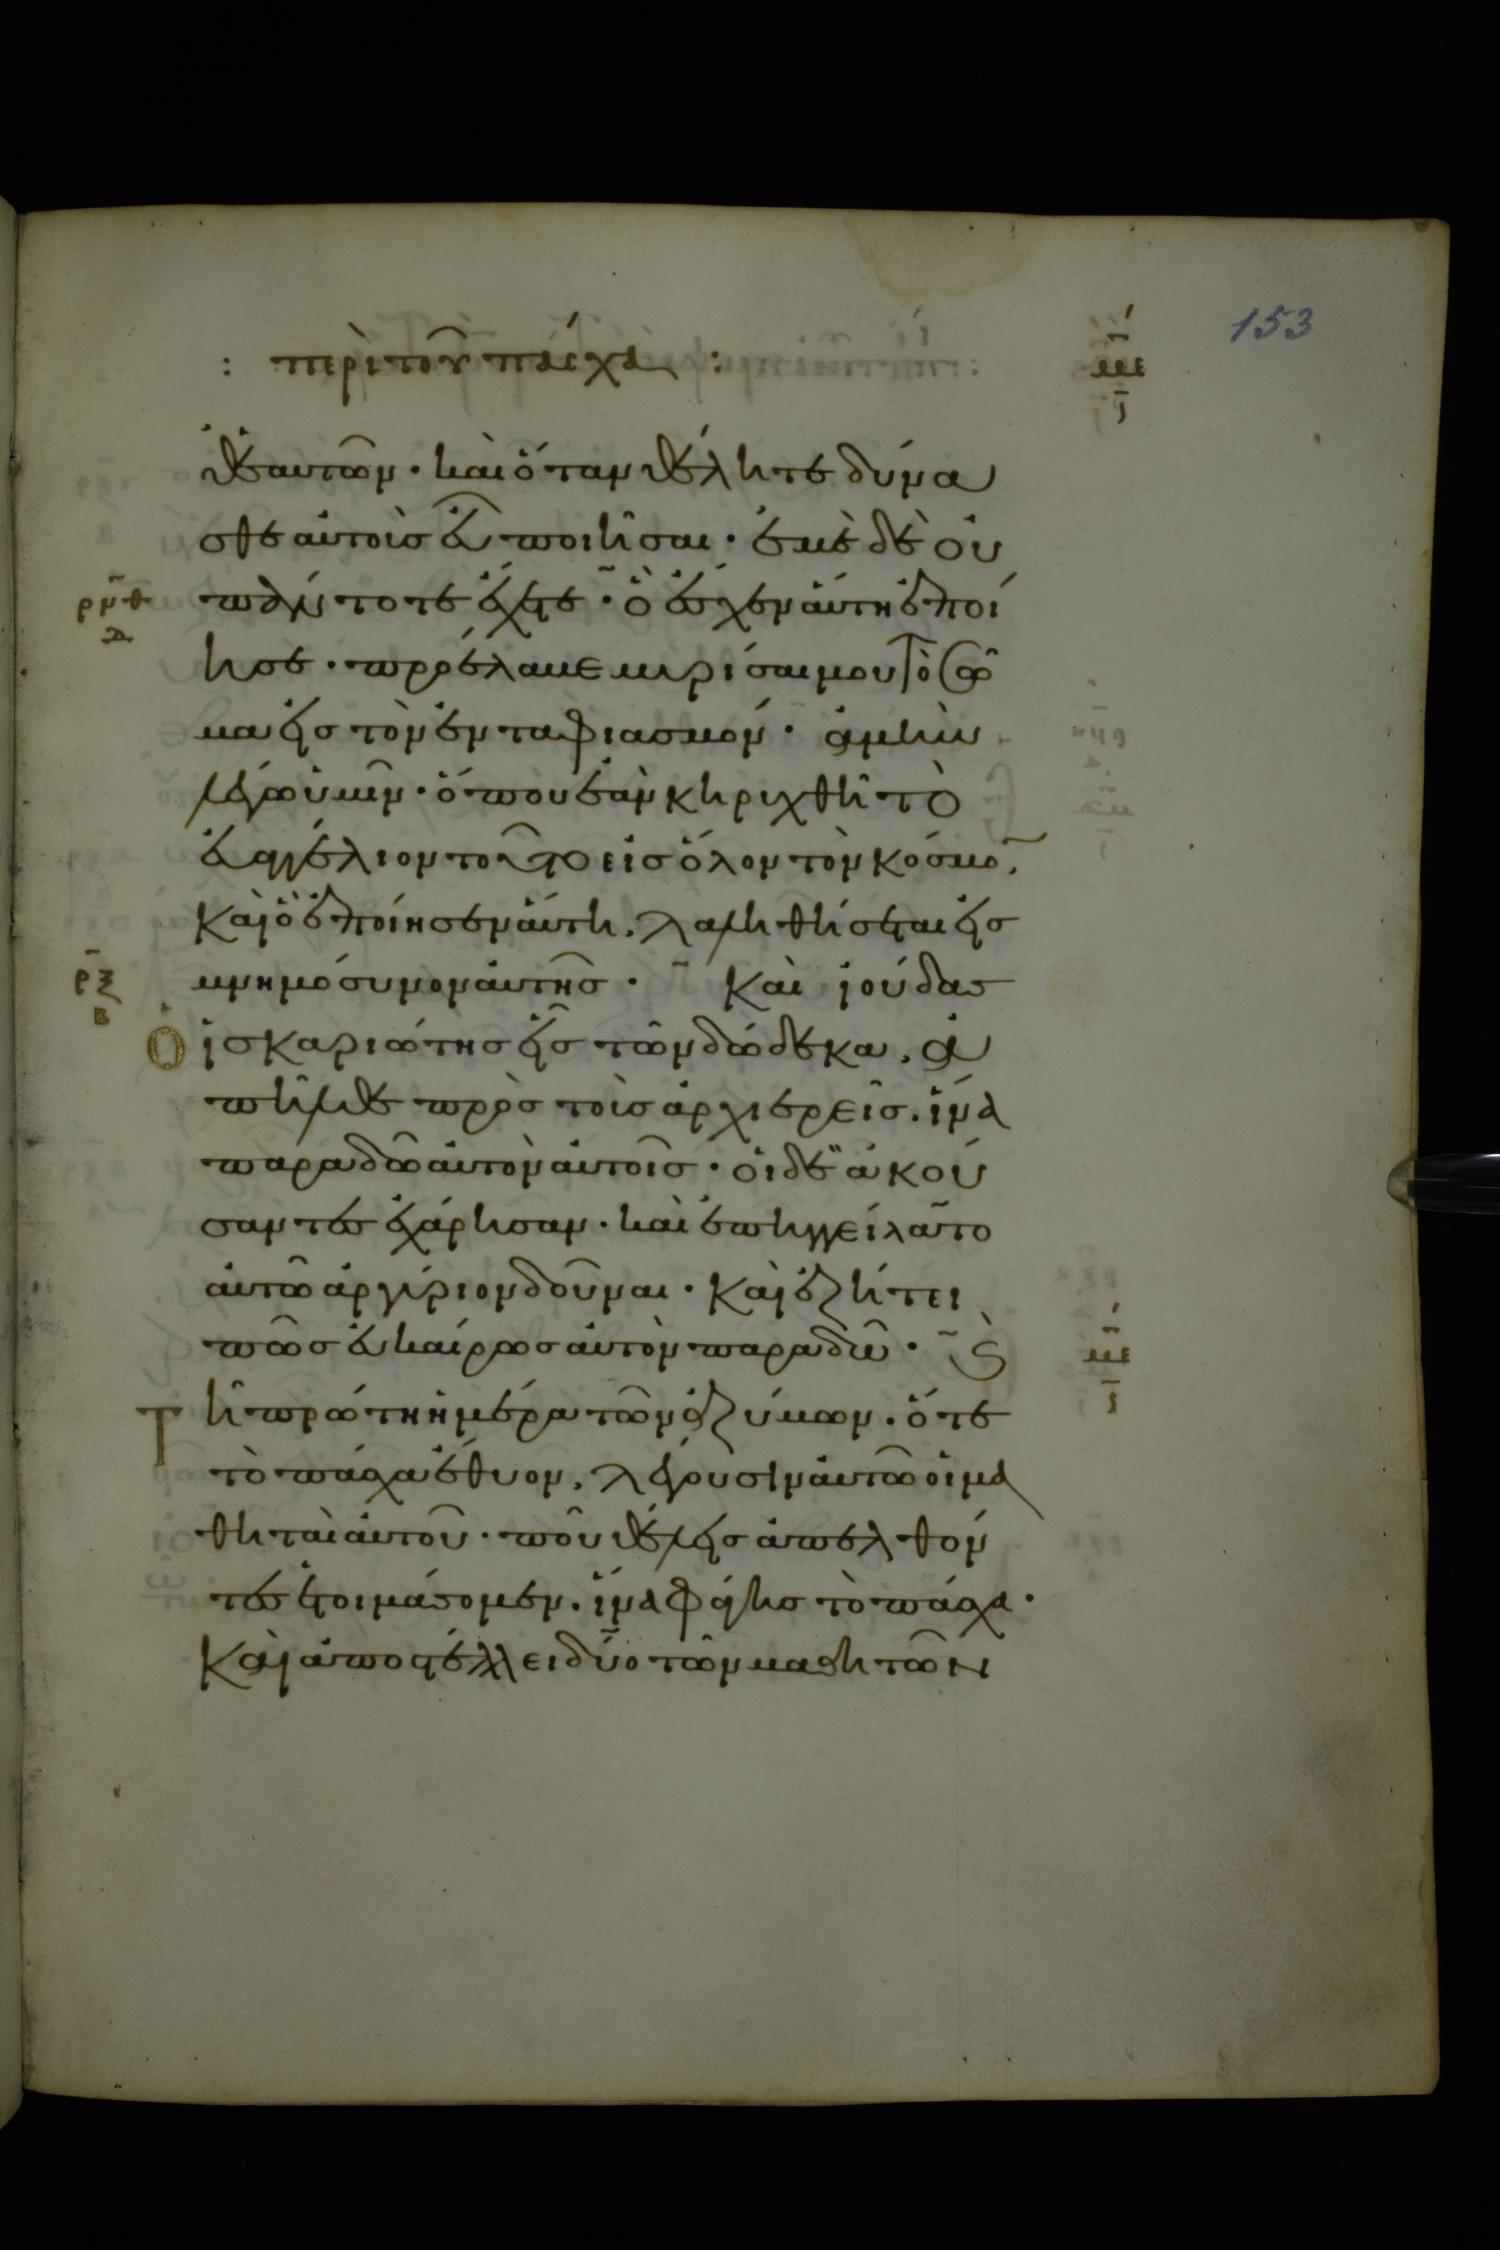 153
: περὶ τοῦ πάσχα :
με
ι
θεαυτῶν· καὶ ὅταν θέλητε δύνα
σθε αὐτοὶς εὖ ποιῆσαι· ἐμὲ δὲ οὐ
ρνθ
δ
πάντοτε ἔχετε· ὃ ἔσχεν ἅυτη ἐποί
ησε· προέλαβε μυρίσαι μου τὸ σῶ
μα εἰς τὸν ἐνταφιασμόν· ἀμὴν
λέγω ὑμῖν· ὅπου ἐὰν κηριχθῆ τὸ
εὐαγγέλιον τοῦτο εἰς ὅλον τὸν κόσμο̄,
καὶ ὃ ἐποίησεν ἅυτη, λαληθήσεται εἰς
ρξ
β
μνημόσυνον αὐτῆς· Καὶ ἰούδας
Ὁ ἰσκαριώτης εἷς τῶν δώδεκα, ἀ
πῆλθε πρὸς τοὶς ἀρχιερεῖς. ἵνα
παραδῶ αὐτὸν αὐτοῖς· οἱ δὲ ἀκού
σαντες ἐχάρησαν· καὶ ἐπηγγείλᾱτο
αὐτῶ ἀργύριον δοῦναι· καὶ ἐζήτει
πῶς εὐκαίρως αὐτὸν παραδῶ· ϛ
με
ι
Τῆ πρώτη ἡμέρα τῶν ἀζύμων. ὅτε
τὸ πάσχα ἔθυον, λέγουσιν αὐτῶ οἱ μα
θηταὶ αὐτοῦ· ποῦ θέλεις ἀπελθόν
τες ἑτοιμάσομεν. ἵνα φάγης τὸ πάσχα·
Καὶ ἀποστέλλει δύο τῶν μαθητῶν